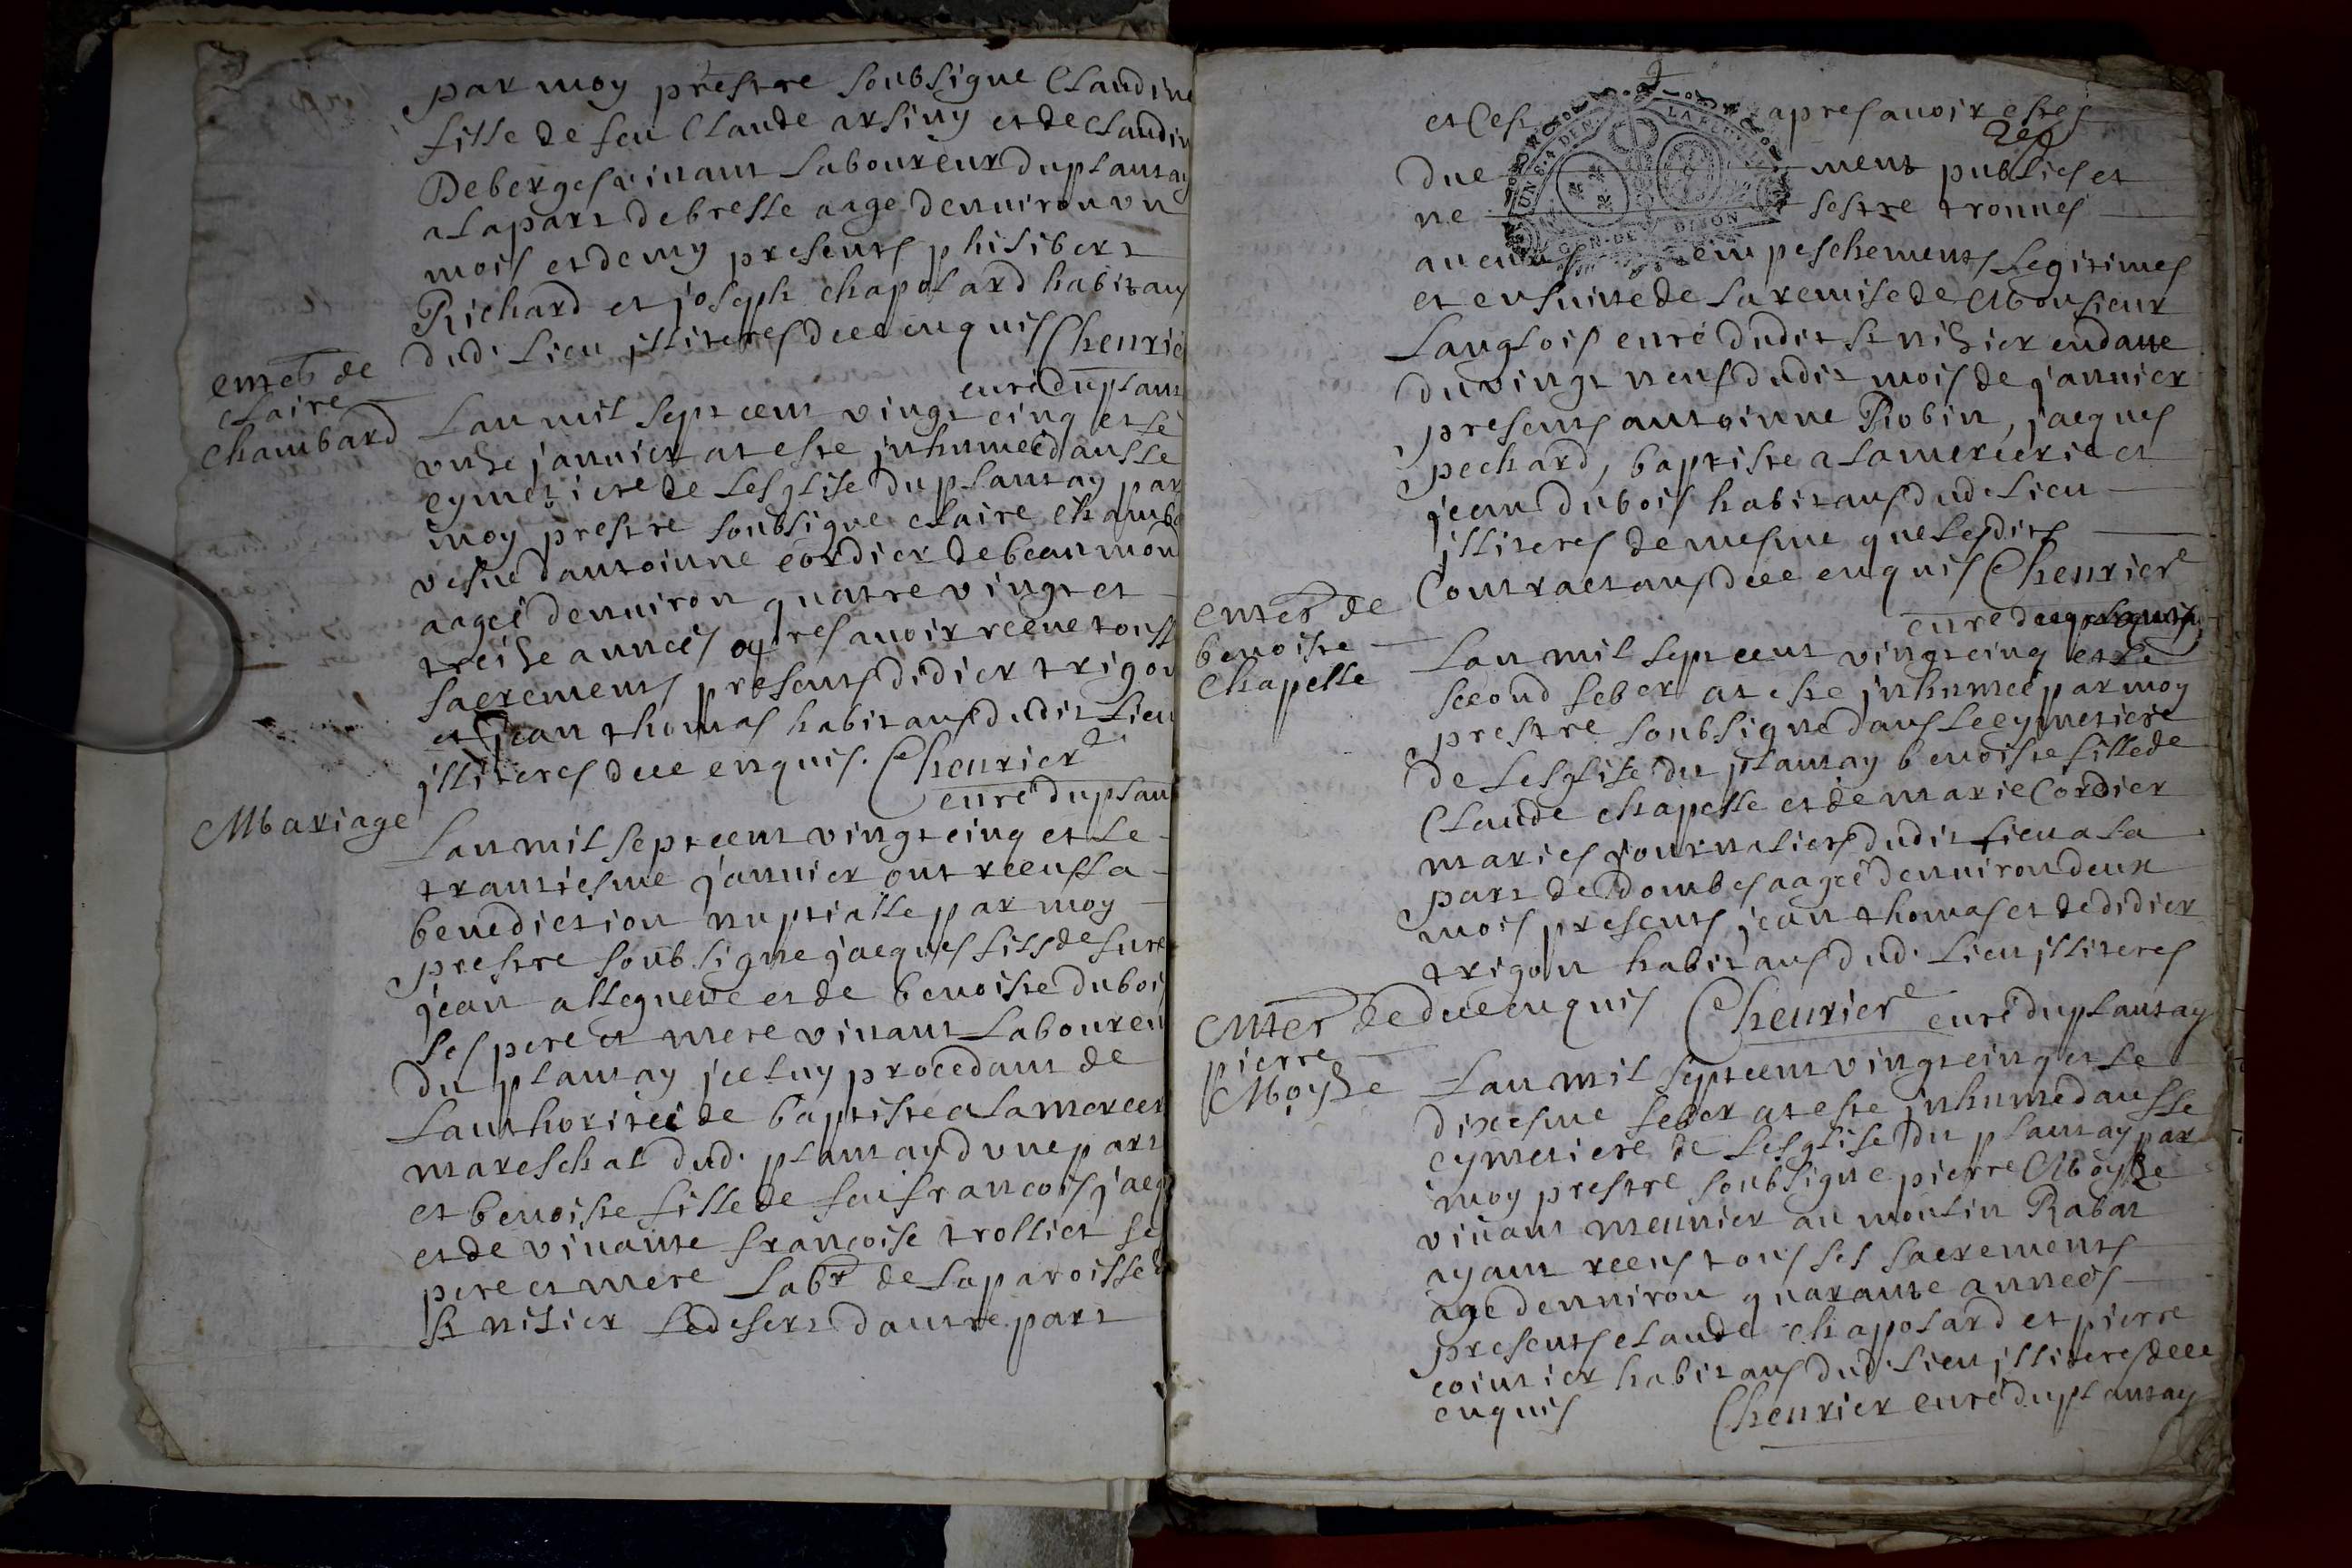 par moy prestre soubsigne Claudine
fille de feu Claude arsiny et de claudin
Deberges vivant laboureur du plantay
a la part de bresse aage denviron un
mois et demy presents philibert
Richard et joseph chapolard habitans
dud. lieu illiteres dece enquis Chevrier
curé du plant
enter de
claire
chambard
Lan mil sept cent vingt cinq et le
unze janvier at este inhumeé dans le
cymetiere de Lesglise du plantay par
moy prestre soubsigne claire chamb
vefue dantoinne cordier de beaumon
aageé denviron quatre vingt et
treize anneés apres avoir receue tous
sacrements presents didier trigon
et jean thomas habitans dudit lieu
illiteres dece enquis. Chevrier
curé du plan
Mariage
Lan mil sept cent vingt cinq et le
trantiesme janvier ont receus la
benediction nuptialle par moy
prestre soubsigne jacques fils de
jean alleguere et de benoiste dubois
ses pere et mere vivant laboureu
du plantay iceluy procedant de
Lauthoriteé de baptiste alamercer
mareschal dud. plantay dune part
et benoiste fille de feu francois jacq
et de vivante francoise trolliet se
pere et mere labr de la paroisse d
st nisier le desert dautre part
et ces apres avoir estes
due ment publies et
ne sestre trouves
aucuns empeschements legitimes
et ensuitte de la remise de Monsieur
Langlois curé dudit st nizier en datte
du vingt neuf dudit mois de janvier
presents antoinne Robin, jacques
pechard, baptiste alamercerie et
jean dubois habitans dud. lieu
illiteres de mesme que lesdits
Contractans dece enquis Chevrier
curé du plantay
enter de
benoiste
chapelle
Lan mil sept cent vingt cinq et le
second feber at este inhumeé par moy
prestre soubsigne dans le cymetiere
de Lesglise du plantay benoiste fille de
Claude chapelle et de marie Cordier
maries journaliers dudit lieu a la
part de dombes aageé denviron deux
mois presents jean thomas et de didier
trigon habitans dud. lieu illiteres
dece enquis Chevrier curé du plantay
enter de
pierre
Moyze
Lan mil sept cent vingt cinq et le
dixesme feber at este inhumé dans le
cymetiere de Lesglise du plantay par
moy prestre soubsigne pierre Moyze
vivant meunier au moulin Rabat
ayant receus tous ses sacrements
age denviron quarante anneés
presents claude chapolard et pierre
cointier habitans dud. lieu illiteres dece
enquis Chevrier curé du plantay